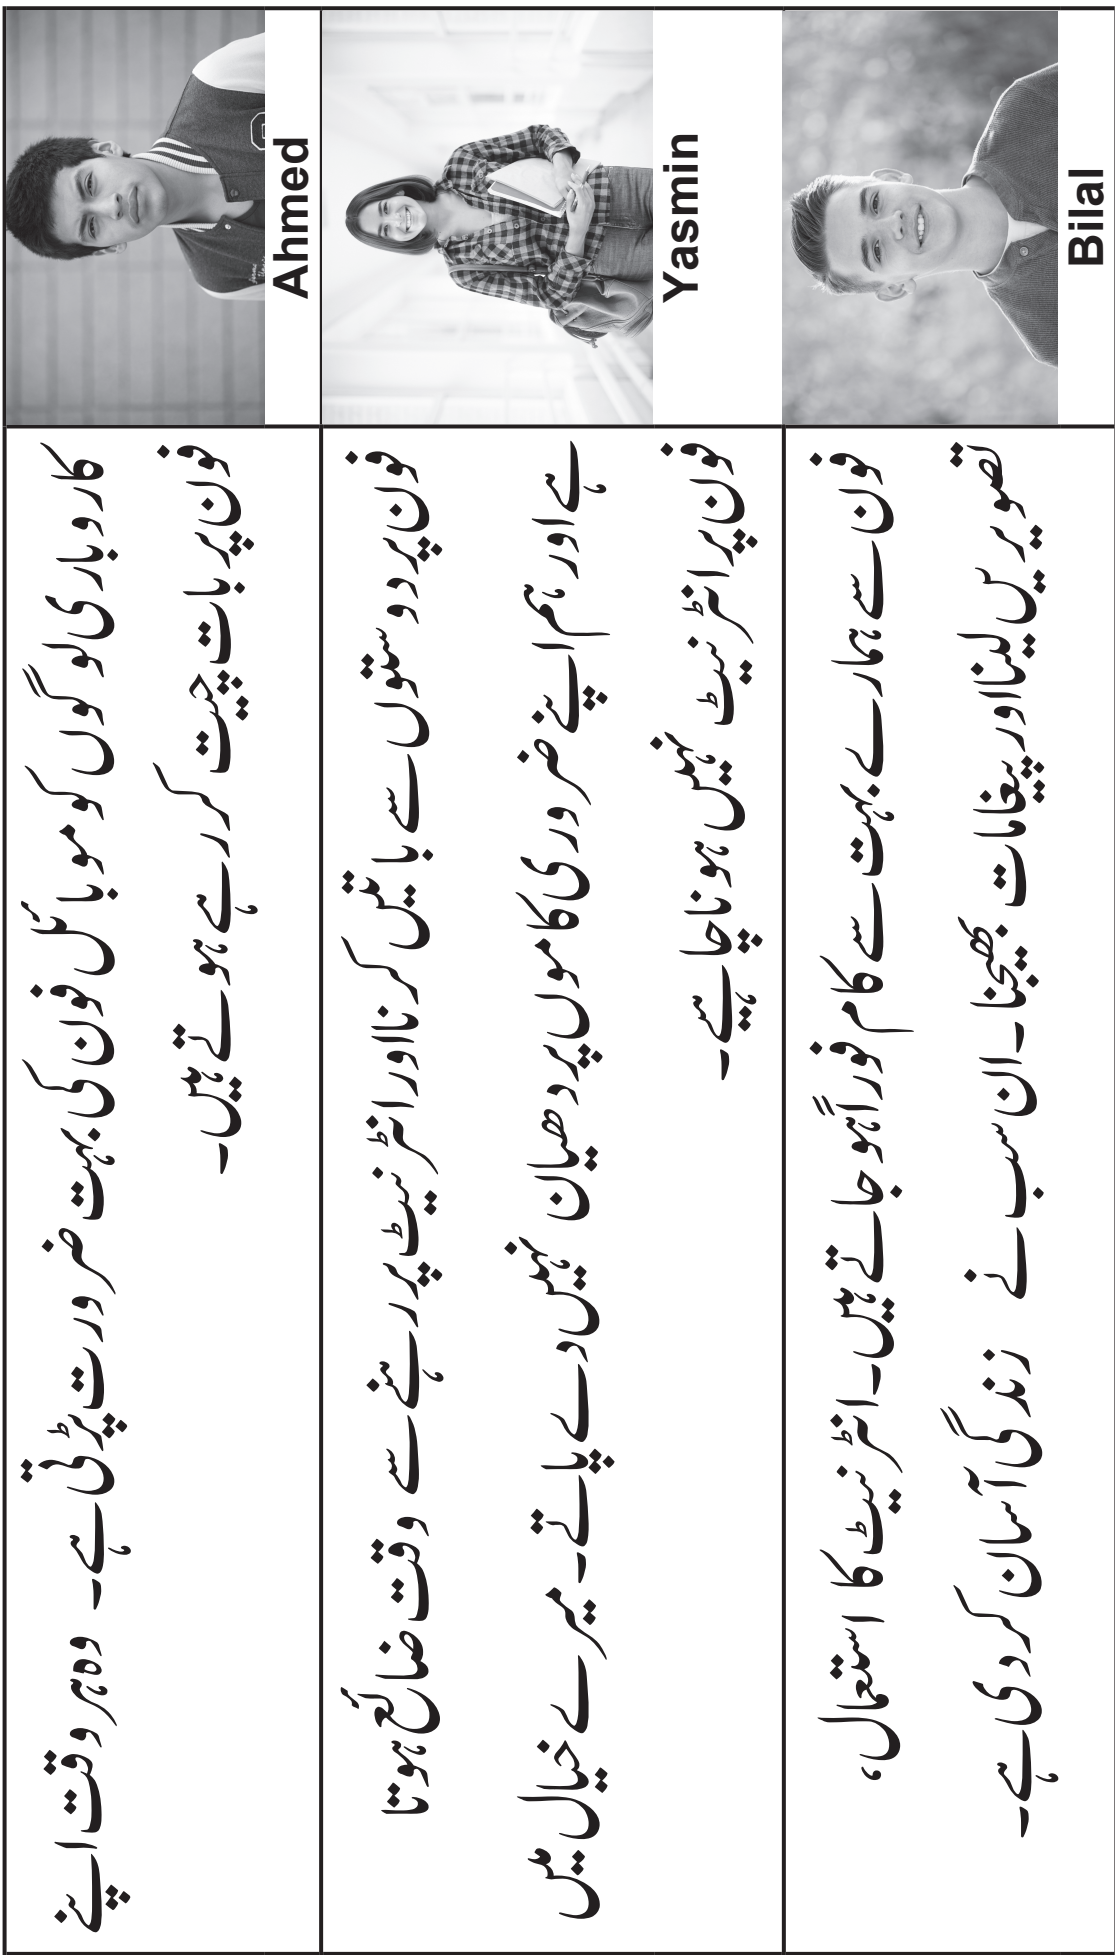 Ahmed
کاروباری لوگوں کو موبائل فون کی بہت ضرورت پڑتی ہے۔ وہ ہر وقت اپنے
فون پر بات چیت کر رہے ہوتے ہیں۔
Yasmin
فون پر دوستوں سے باتیں کرنا اور انٹرنیٹ پر رہنے سے وقت ضائع ہوتا
ہے اور ہم اپنے ضروری کاموں پر دھیان نہیں دے پاتے۔ میرے خیال میں
فون پر انٹرنیٹ نہیں ہونا چاہیے۔
Bilal
فون سے ہمارے بہت سے کام فوراً ہو جاتے ہیں۔ انٹرنیٹ کا استعمال،
تصویریں لینا اور پیغامات بھیجنا۔ ان سب نے زندگی آسان کر دی ہے۔